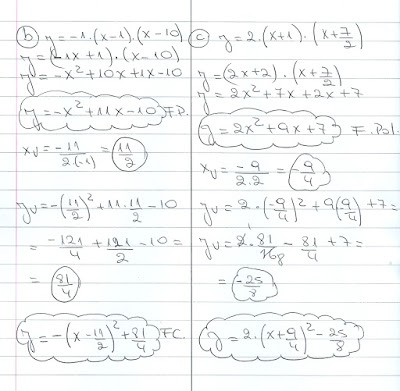 b) y=-1.(x-1).(x-10)
y=(-1x+1).(x-10)
y=-x²+10x+1x-10
y=-x²+11x-10 F.P.
xv=-11/2.(-1)=11/2
yv=-(11/2)²+11.11/2-10
=-121/4+121/2-10=
=81/4
y=-(x-11/2)²+81/4 F.C.
c) y=2.(x+1).(x+7/2)
y=(2x+2).(x+7/2)
y=2x²+7x+2x+7
y=2x²+9x+7 F.Pol.
xv=-9/2.2=-9/4
yv=2.(-9/4)²+9(9/4)+7=
yv=2.81/168-81/4+7=
=-25/8
y=2.(x+9/4)²-25/8